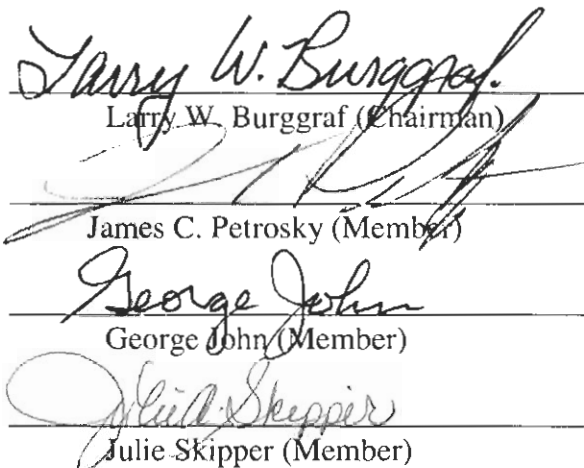 Larry W. Burggraf.
Larry W. Burggraf (Chairman)
James C. Petrosky (Member)
George John
George John (Member)
Julie A. Skipper
Julie Skipper (Member)